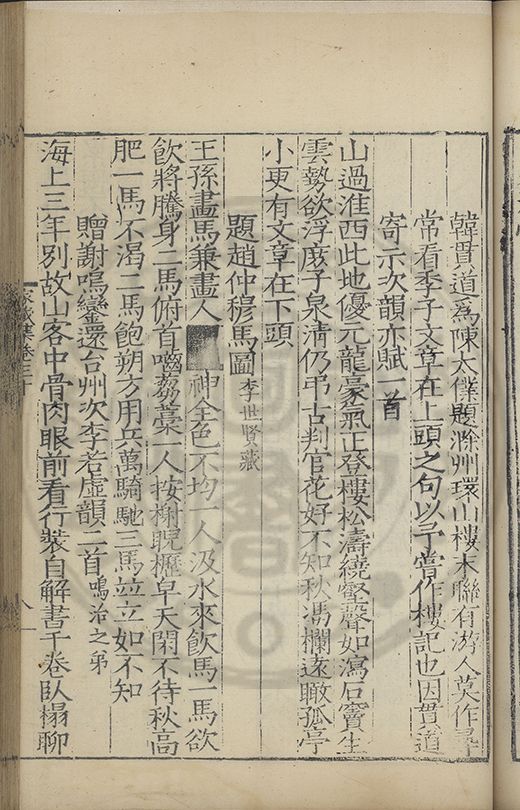 韓貫道為陳太僕題滁州環山樓木聯有游人莫作尋
常看季子文章在上頭之句以予嘗作樓記也因貫道
寄示次韻亦賦一首
山過淮西此地優元龍豪氣正登樓松濤繞壑聲如瀉石竇生
雲勢欲浮庶子泉清仍弔古判官花好不知秋馮欄遠瞰孤亭
小更有文章在下頭
題趙仲穆馬圖李世賢藏
王孫畫馬兼畫人 神全色不均一人汲水來飲馬一馬欲
飲將騰身二馬俯首嚙芻藁一人按槲睨櫪皁天閑不待秋高
肥一馬不渴二馬飽朔方用兵萬騎馳三馬竝立如不知
贈謝鳴鑾還台州次李若虛韻二首鳴治之弟
海上三年別故山客中骨肉眼前看行裝自解書千卷臥榻聊
集卷三十
八